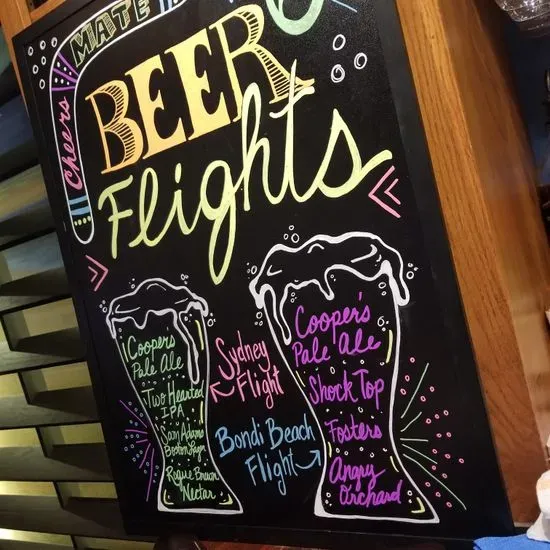 Cheers
MATE
BEER
Flights
Coopers
Pale Ale
Two Hearted
IPA
Sam Adams
Boston Lager
Rogue Brown
Nectar
Sydney
Flight
Bondi Beach
Flight
Cooper's
Pale Ale
Shock Top
Fosters
Angry
Orchard